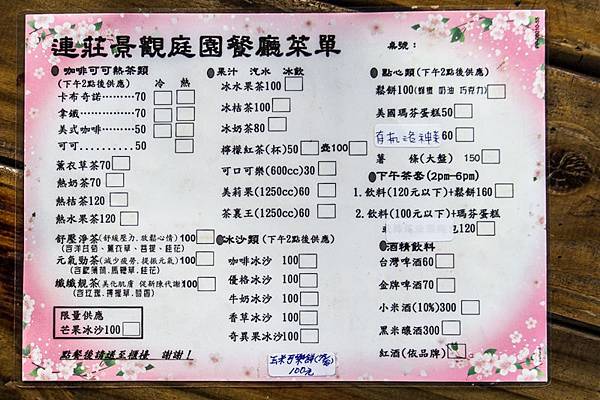 連莊景觀庭園餐廳菜單
桌號：
●咖啡可可熱茶類
(下午2點後供應) 冷 熱
卡布奇諾………70
拿鐵……………70
美式咖啡………50
可可……………50
薰衣草茶70
熱奶茶70
熱桔茶120
熱水果茶120
舒壓淨茶(舒緩壓力.放鬆心情)100
元氣勁茶(減少疲勞.提振元氣)100
纖纖靚茶(美化肌膚 促新陳代謝)100
限量供應
芒果冰沙100
點餐後請送至櫃檯 謝謝！
●果汁 汽水 冰飲
冰水果茶100
冰桔茶100
冰奶茶80
檸檬紅茶(杯)50 壺100
可口可樂(600cc)30
美莉果(1250cc)60
茶裏王(1250cc)60
●冰沙類(下午2點後供應)
咖啡冰沙 100
優格冰沙 100
牛奶冰沙 100
香草冰沙 100
奇異果冰沙100
100元
●點心類(下午2點後供應)
鬆餅100(蜂蜜 奶油 巧克力)
美國瑪芬蛋糕50
60
薯 條(大盤) 150
●下午茶套(2pm-6pm)
1.飲料(120元以下)+鬆餅160
2.飲料(100元以下)+瑪芬蛋糕
120
●酒精飲料
台灣啤酒60
金牌啤酒70
小米酒(10%)300
黑米釀酒300
紅酒(依品牌)